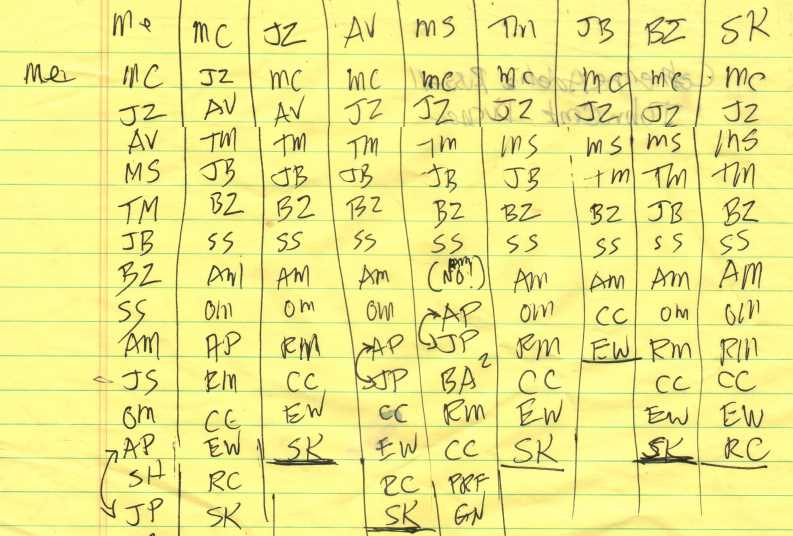 Me MC JZ AV MS TM JB BZ SK
MC JZ MC MC MC MC MC MC MC
JZ AV AV JZ JZ JZ JZ JZ JZ
AV TM TM TM TM MS MS MS MS
MS JB JB JB JB JB TM TM TM
TM BZ BZ BZ BZ BZ BZ JB BZ
JB SS SS SS SS SS SS SS SS
BZ AM AM AM (NO!) AM AM AM AM
SS OM OM OM AP OM CC OM OM
AM AP RM AP JP RM EW RM RM
JS RM CC JP BA2 CC CC CC
OM CC EW CC RM EW EW EW
AP EW SK EW CC SK SK RC
SH RC RC PRF
JP SK SK GN